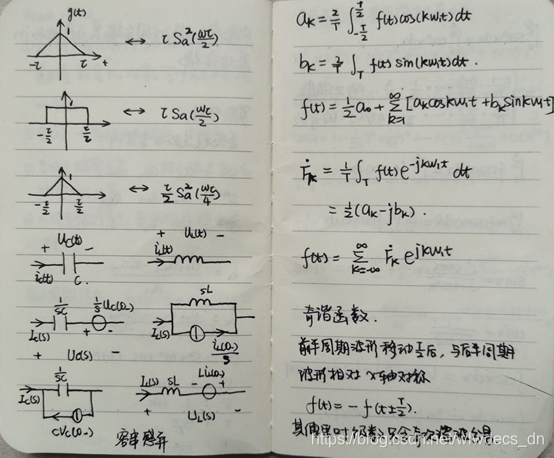 g(t)
1
-τ τ t
↔ τ Sa²(ωτ/2)
1
-τ/2 τ/2
↔ τ Sa(ωτ/2)
1
-τ/2 τ/2
↔ τ/2 Sa²(ωτ/4)
+ Uc(t) -
ic(t) C
+ UL(t) -
iL(t)
1/SC 1/S Uc(0-)
Ic(S) + -
+ Uc(S) -
SL
IL(S)
iL(0-)/S
1/SC
Ic(S)
CVc(0-)
Li(0-)
IL(S) SL - +
+ UL(S) -
容串感并
aK = 2/T ∫_{-T/2}^{T/2} f(t)cos(kω₁t)dt
bK = 2/T ∫_T f(t)sin(kω₁t)dt.
f(t) = 1/2 a₀ + Σ_{k=1}^{∞} [aKcoskω₁t + bKsinkω₁t]
ḞK = 1/T ∫_T f(t)e^{-jkω₁t} dt
= 1/2(aK-jbK).
f(t) = Σ_{k=-∞}^{∞} ḞK e^{jkω₁t}
奇谐函数.
前半周期波形移动T/2后，与后半周期
波形相对x轴对称
f(t) = -f(t±T/2).
https://blog.csdn.net/wlwdecs_dn